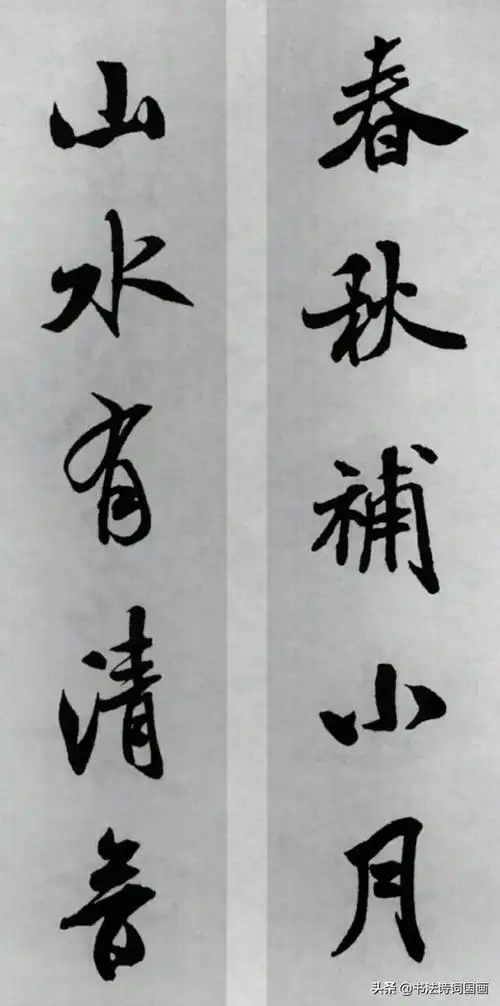 春秋補小月
山水有清音
头条 @书法诗词国画